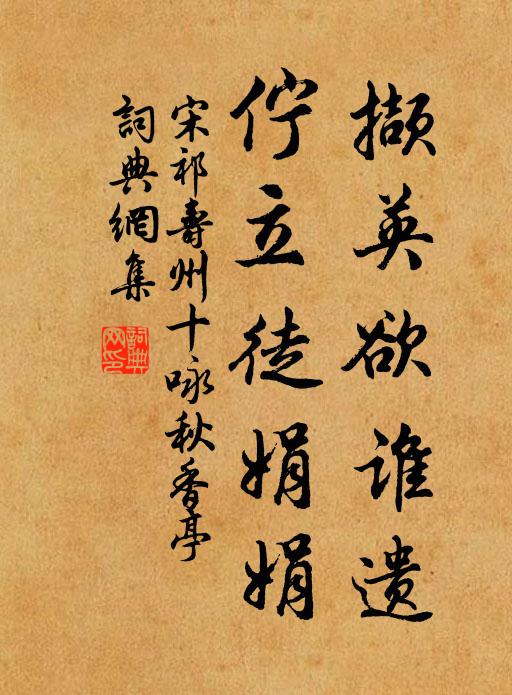 擷英欲誰遺
佇立徒娟娟
宋祁壽州十咏秋香亭
詞典網集
詞典
网印